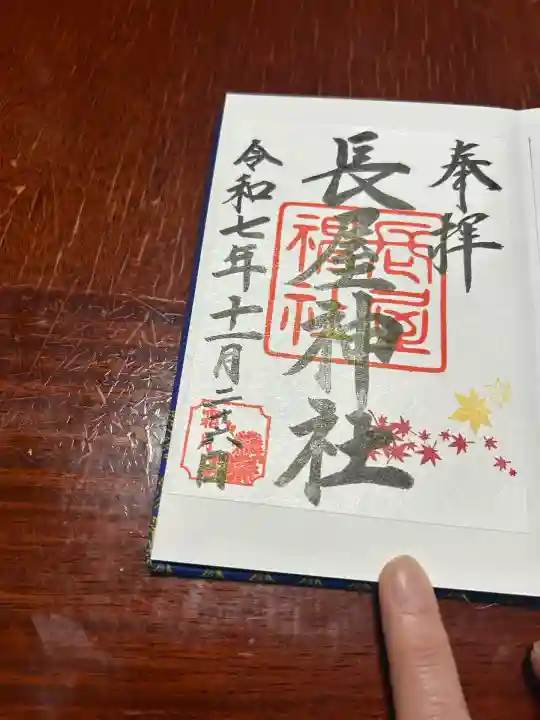 奉拝
長屋神社
長屋神社
令和七年十一月二十六日